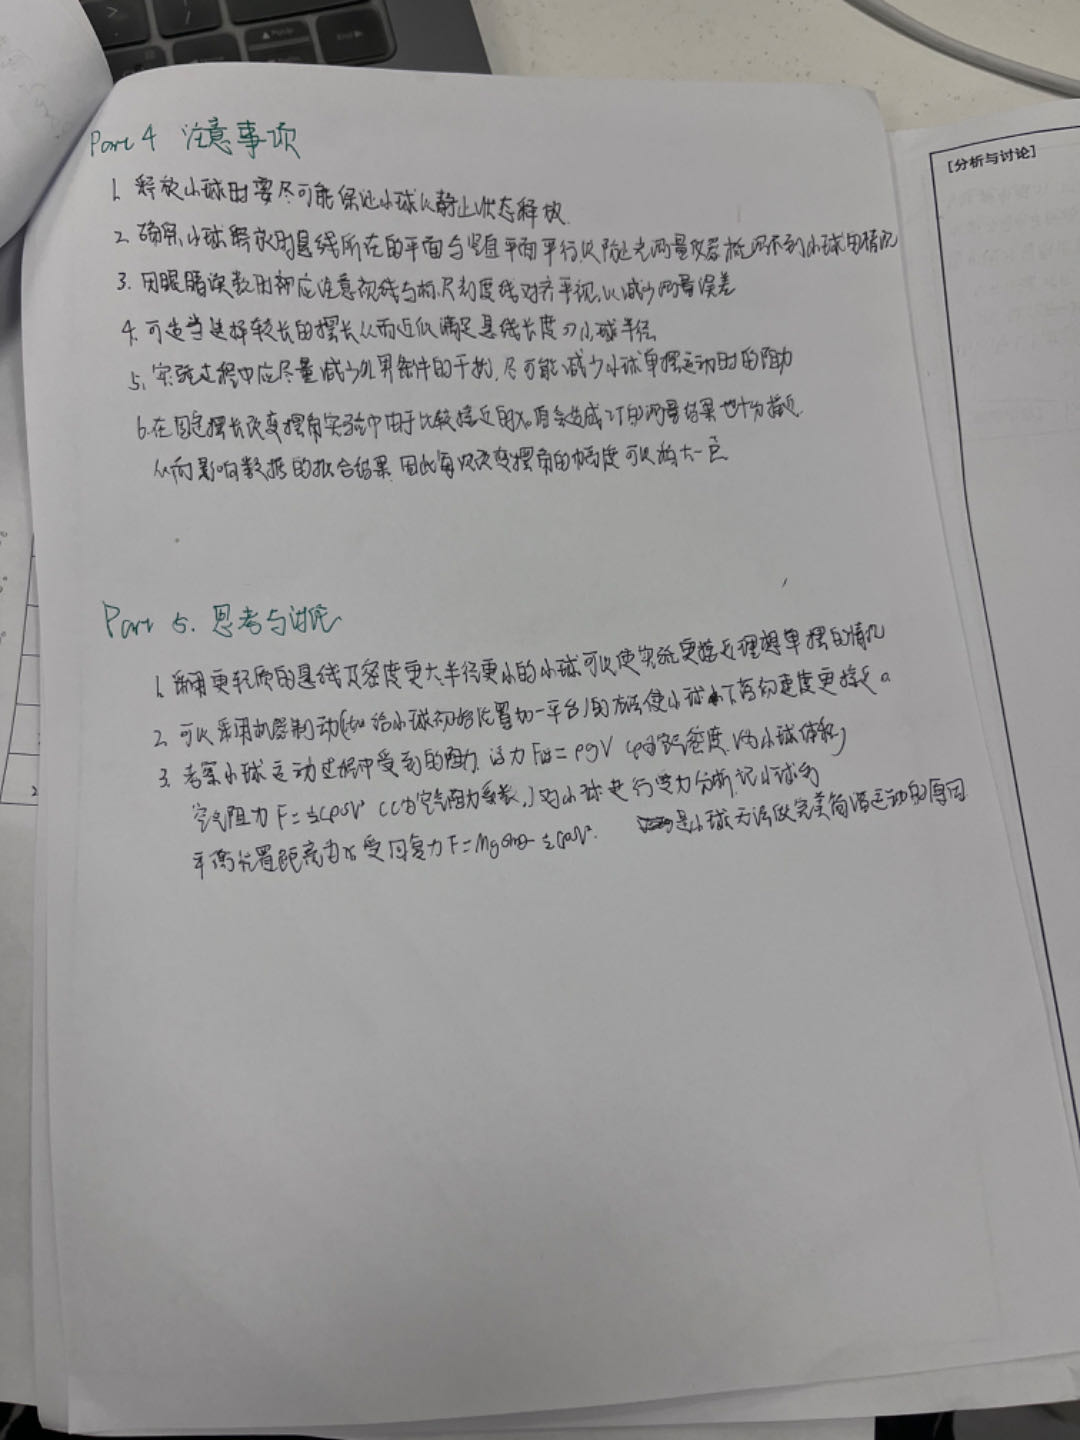 PgUp
End
[分析与讨论]
Part 4 注意事项
1. 释放小球时要尽可能保证小球以静止状态释放.
2. 确保小球释放时悬线所在的平面与竖直平面平行以防止光测量仪器检测不到小球的情况
3. 用眼睛读数时都应注意视线与标尺刻度线对齐平视,以减少测量误差
4. 可适当选择较长的摆长从而近似满足悬线长度》小球半径
5. 实验过程中应尽量减少外界条件的干扰,尽可能减少小球单摆运动时的阻力
6. 在固定摆长改变摆角实验中由于比较接近的 值会造成2T的测量结果也十分接近.
从而影响数据的拟合结果.因此每次改变摆角的幅度可以稍大一些
Part 5. 思考与讨论
1. 采用更轻质的悬线及密度更大半径更小的小球可以使实验更接近理想单摆的情况
2. 可以采用机器制动(如给小球初始位置加一平台)的方法使小球下落初速度更接近0
3. 考察小球运动过程中受到的阻力. 浮力F浮=ρgV (ρ为空气密度,V为小球体积)
空气阻力F=½CρSv² (C为空气阻力系数,)对小球进行受力分析,记小球与
平衡位置距离为x 受回复力F=Mgsinθ-½CρSv². 是小球无法做完美简谐运动的原因